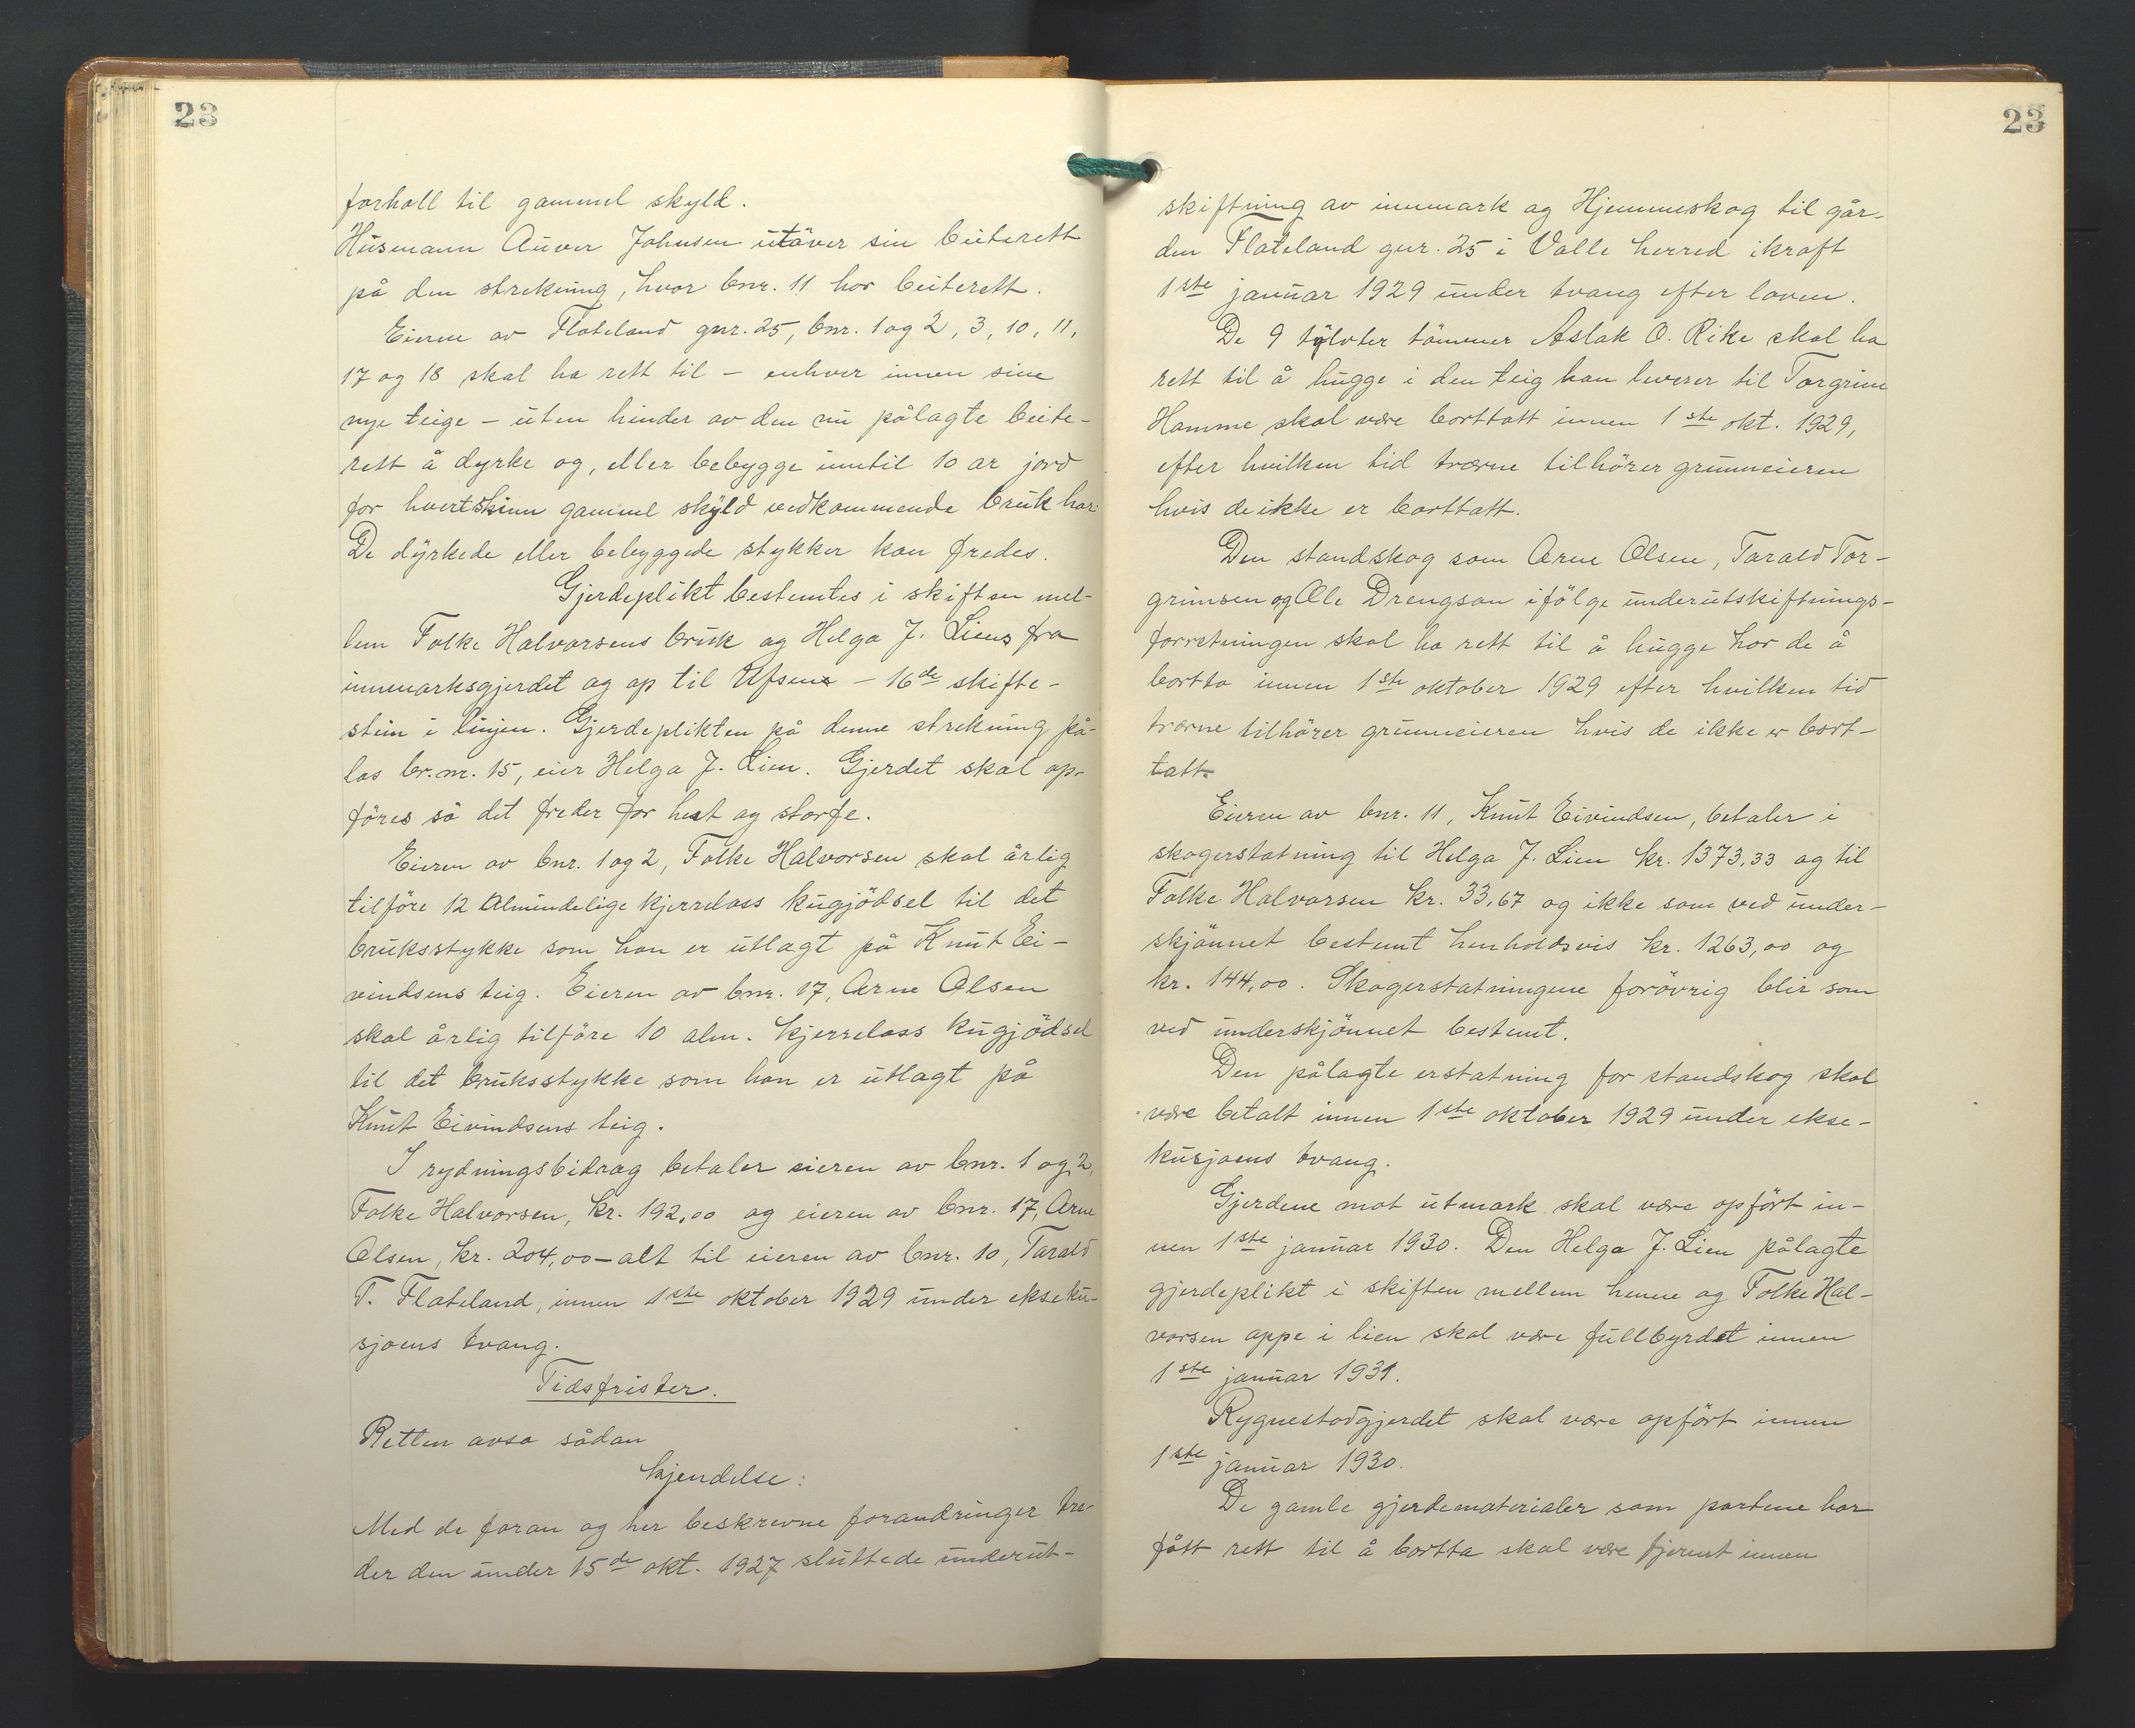 23
forholl til gammel skyld.
Husmann Auver Johnsen utöver sin beiterett
på den strekning, hvor bnr. 11 har beiterett.
Eierne av Flateland gnr. 25, bnr. 1 og 2, 3, 10, 11,
17 og 18 skal ha rett til – enhver innen sine
nye teige – uten hinder av den nu pålagte beite-
rett å dyrke og, eller bebygge inntil 10 ar jord
for hvert skinn gammel skyld vedkommende bruk har.
De dyrkede eller bebyggede stykker kan fredes.
Gjerdeplikt bestemtes i skiften mel-
lem Folke Halvorsens bruk og Helga J. Liens fra
innmarksgjerdet og op til Ufsene – 16de skifte-
stein i linjen. Gjerdeplikten på denne strekning på-
las br.nr. 15, eier Helga J. Lien. Gjerdet skal op-
föres så det freder for hest og storfe.
Eieren av bnr. 1 og 2, Folke Halvorsen skal årlig
tilföre 12 almindelige kjerrelass kugjödsel til det
bruksstykke som han er utlagt på Knut Ei-
vindsens teig. Eieren av bnr. 17, Arne Olsen
skal årlig tilföre 10 alm. kjerrelass kugjödsel
til det bruksstykke som han er utlagt på
Knut Eivindsens teig.
I rydningsbidrag betaler eieren av bnr. 1 og 2,
Folke Halvorsen, kr. 192,00 og eieren av bnr. 17, Arne
Olsen, kr. 204,00 – alt til eieren av bnr. 10, Tarald
T. Flateland, innen 1ste oktober 1929 under ekseku-
sjoens tvang.
Tidsfrister.
Retten avsa sådan
kjendelse:
Med de foran og her beskrevne forandringer tre-
der den under 15de okt. 1927 sluttede underut-
23
skiftning av innmark og Hjemmeskog til går-
den Flateland gnr. 25 i Valle herred ikraft
1ste januar 1929 under tvang efter loven.
De 9 tylvter tömmer Aslak O. Rike skal ha
rett til å hugge i den teig han leverer til Torgrim
Homme skal være borttatt innen 1ste okt. 1929,
efter hvilken tid trærne tilhörer grunneieren
hvis de ikke er borttatt.
Den standskog som Arne Olsen, Tarald Tor-
grimsen og Ole Drengson ifölge underutskiftnings-
forretningen skal ha rett til å hugge har de å
bortta innen 1ste oktober 1929 efter hvilken tid
trærne tilhörer grunneieren hvis de ikke er bort-
tatt.
Eieren av bnr. 11, Knut Eivindsen, betaler i
skogerstatning til Helga J. Lien kr. 1373,33 og til
Folke Halvorsen kr. 33,67 og ikke som ved under-
skjönnet bestemt henholdsvis kr. 1263,00 og
kr. 144,00. Skogerstatningene forövrig blir som
ved underskjönnet bestemt.
Den pålagte erstatning for standskog skal
være betalt innen 1ste oktober 1929 under ekse-
kusjoens tvang.
Gjerdene mot utmark skal være opfört in-
nen 1ste januar 1930. Den Helga J. Lien pålagte
gjerdeplikt i skiften mellem henne og Folke Hal-
vorsen oppe i lien skal være fullbyrdet innen
1ste januar 1931.
Rygnestadgjerdet skal være opfört innen
1ste januar 1930.
De gamle gjerdematerialer som partene har
fått rett til å bortta skal være fjernet innen